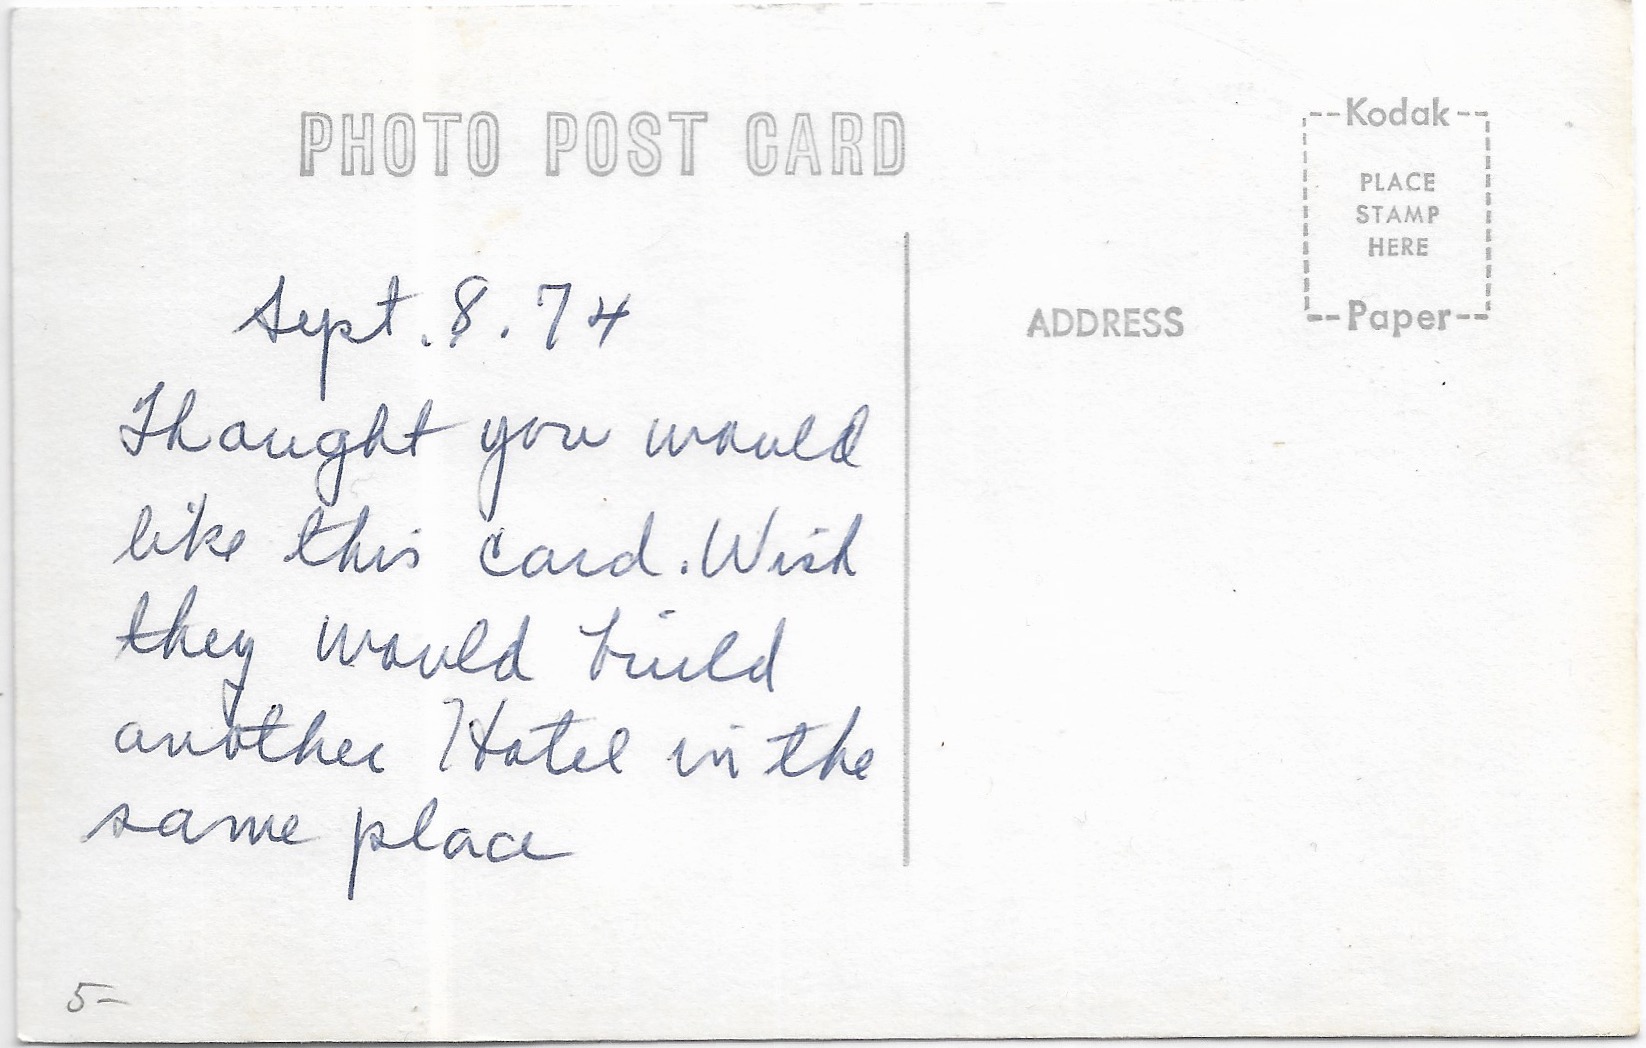 PHOTO POST CARD
Kodak
PLACE
STAMP
HERE
Paper
ADDRESS
Sept. 8. 74
Thought you would
like this card. Wish
they would build
another Hotel in the
same place
5-